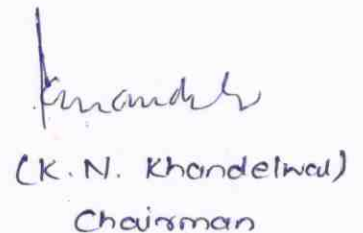 (K. N. Khandelwal)
Chairman